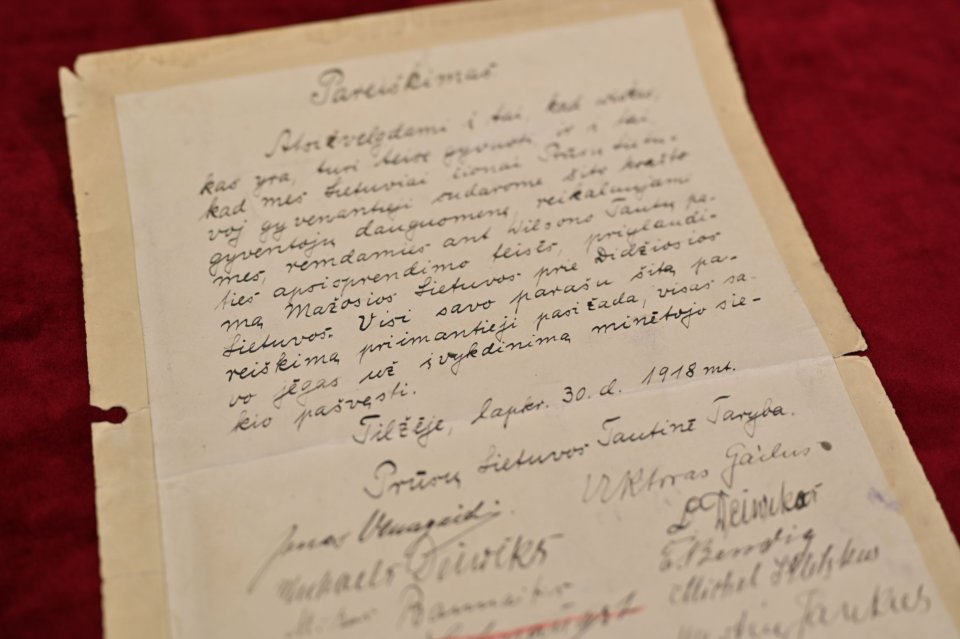 Pareiškimas
Atsižvelgdami į tai, kad viskas,
kas yra, turi teisę gyvuoti, ir į tai,
kad mes Lietuviai čionai Prūsų Lietu-
voj gyvenantieji sudarome šito krašto
gyventojų daugumenę, reikalaujami
mes, remdamies ant Wilsono Tautų pa-
ties apsisprendimo teisės, priglaudi-
mą Mažosios Lietuvos prie Didžiosios
Lietuvos. Visi savo parašu šitą pa-
reiškimą priimantieji pasižada, visas sa-
vo jėgas už įvykdinimą minėtojo sie-
kio pašvęsti.
Tilžėje, lapkr. 30. d. 1918 mt.
Prūsų Lietuvos Tautinė Taryba.
Viktoras Gailus
Jonas Vanagaidis
Deiwikas
Mikaels Deiwiks
E. Bendig
Michel Klotzkus
Jankus